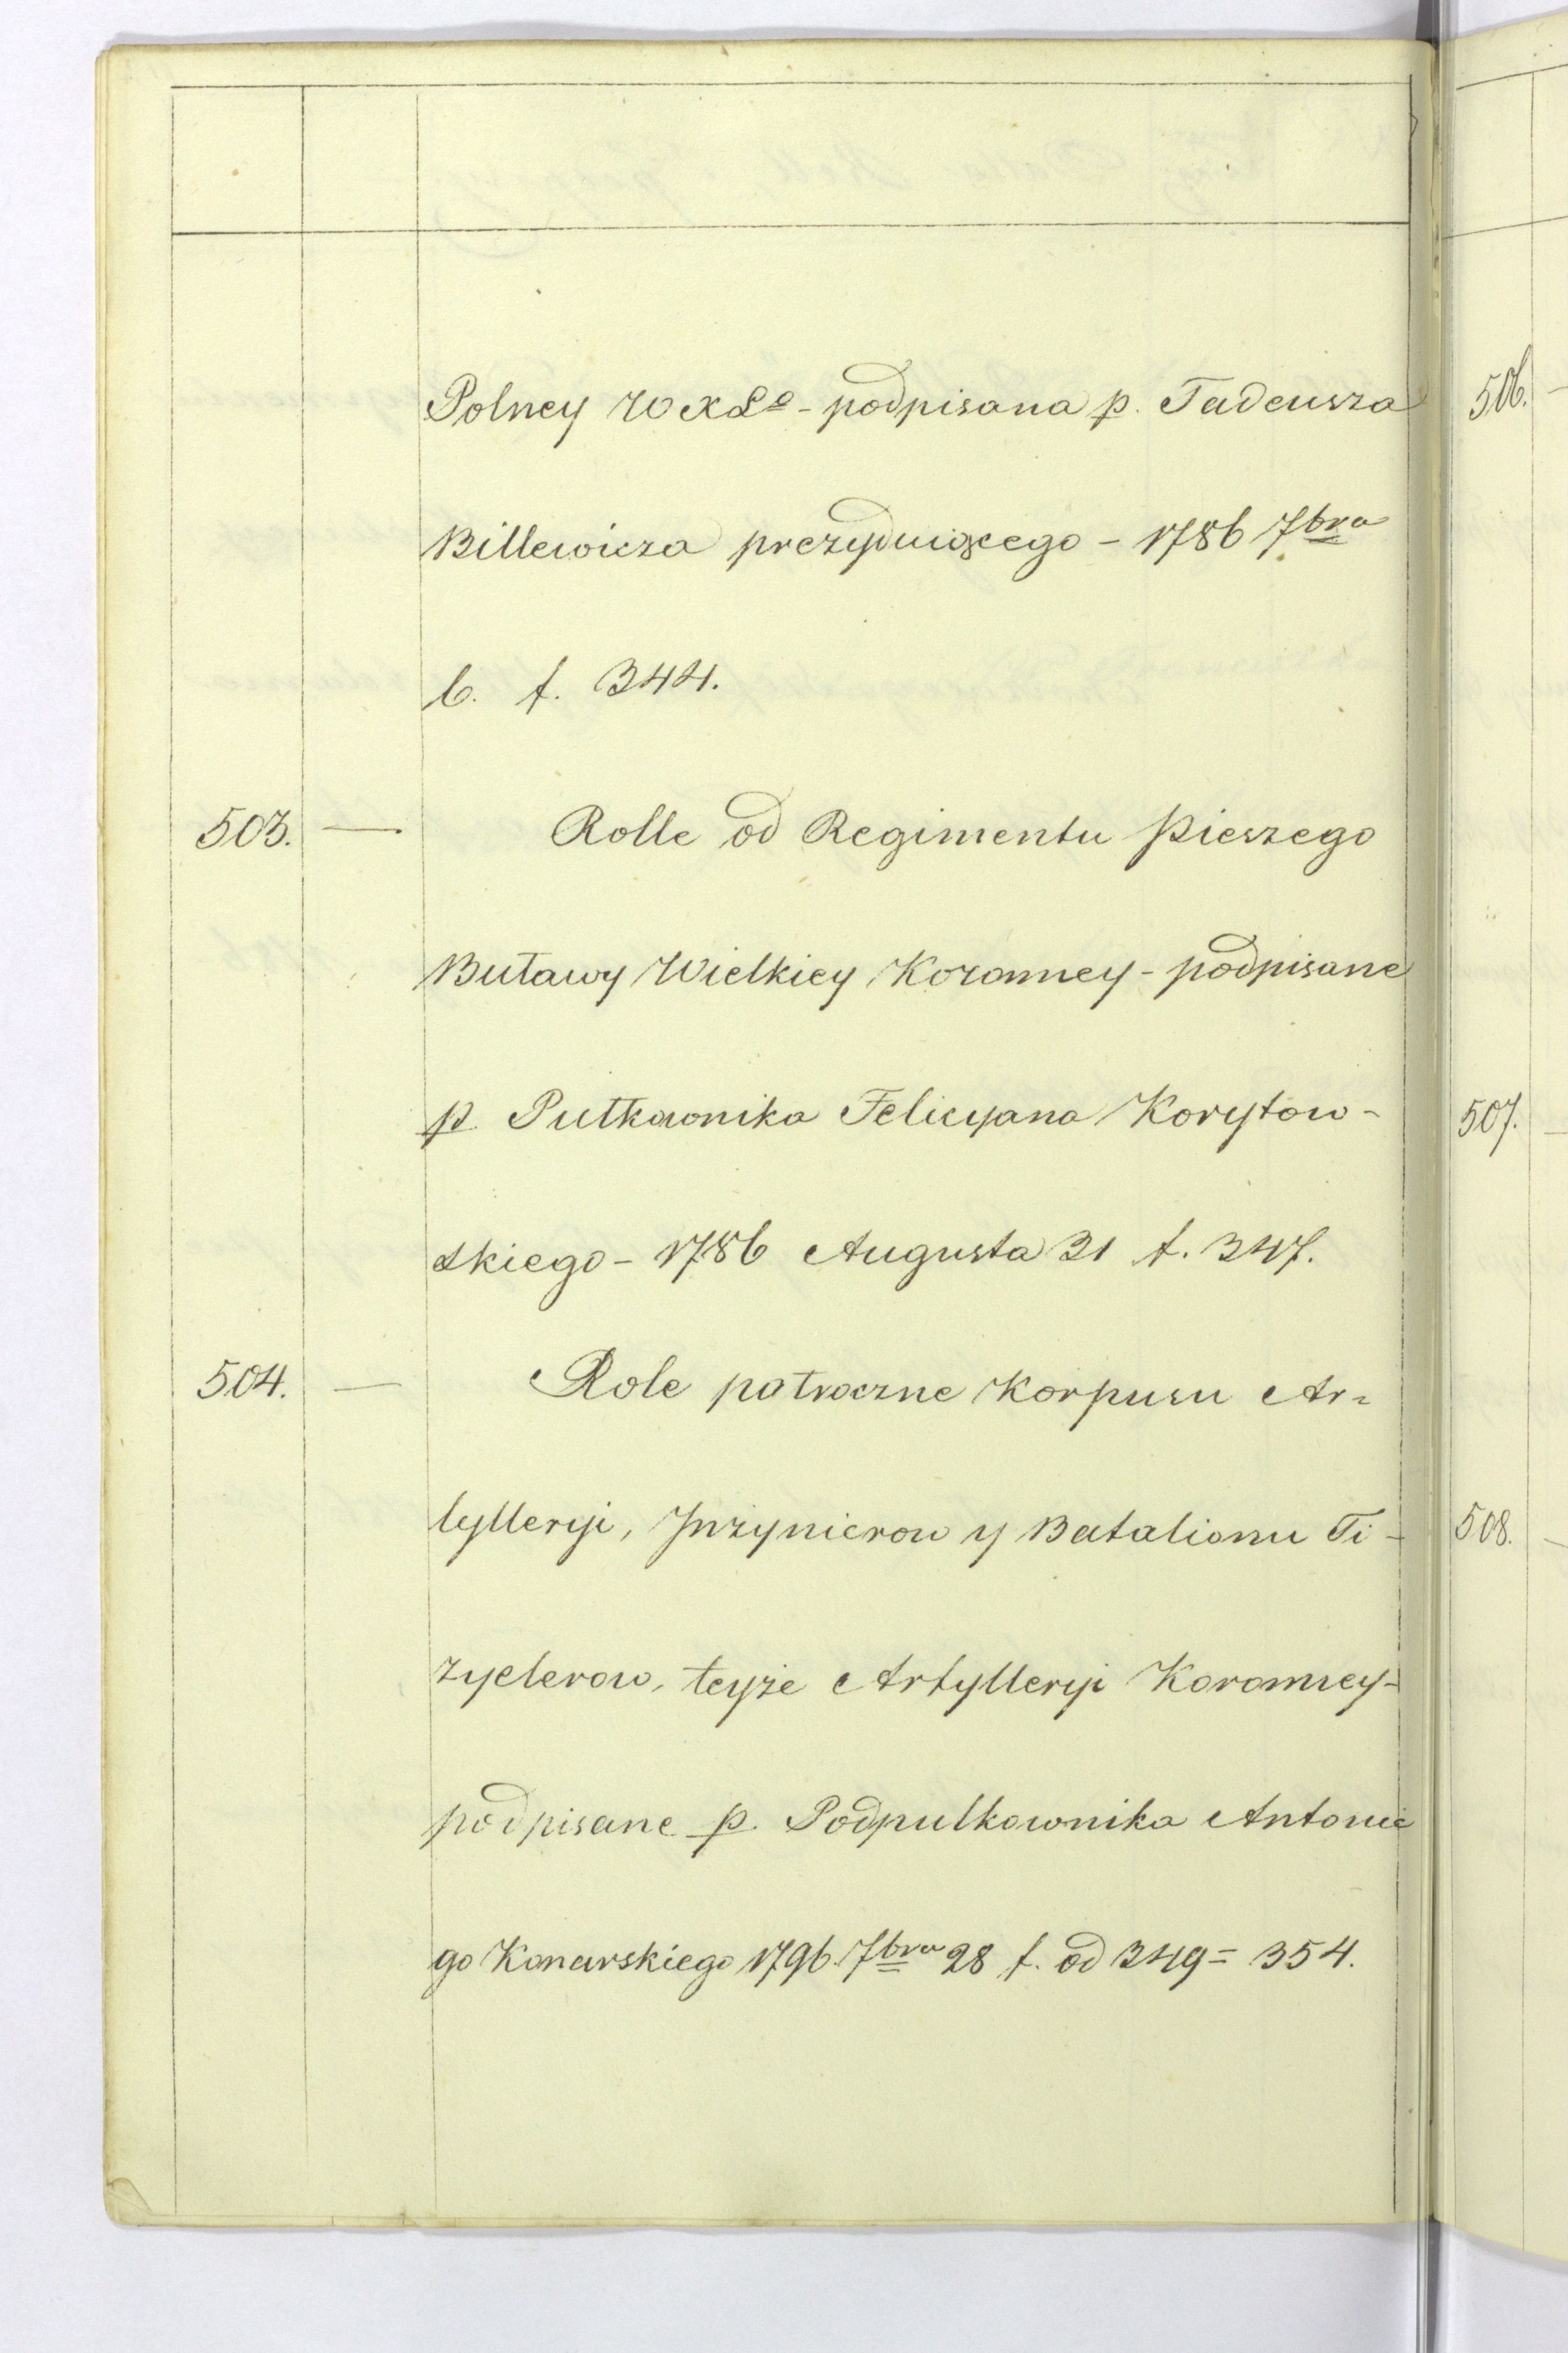 Polney W X Lo - podpisana p. Tadeusza
Billewicza prezyduiącego - 1786 7bra
6. f. 344.
503. — Rolle od Regimentu Pieszego
Buławy Wielkiey Koronney - podpisane
p. Pułkownika Felicyana Korytow-
skiego - 1786 Augusta 31 f. 347.
504. — Role patroczne Korpusu Ar=
tylleryi, Inzynierow y Batalionu Fi-
zyelerow, teyże Artylleryi Koronney-
podpisane p. Podpulkownika Antonie
go Konarskiego 1796. 7bra 28 f. od 349 = 354.
506. -
507. —
508. -